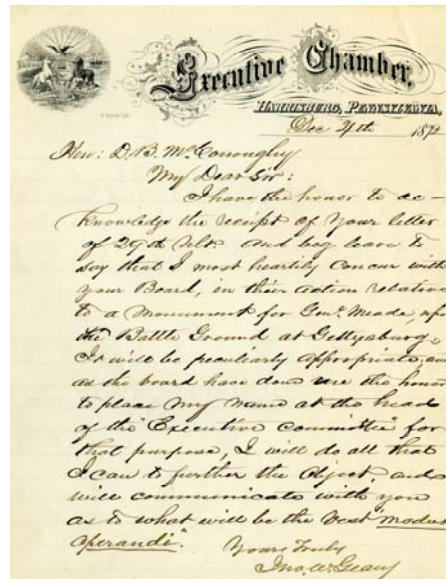 Executive Chamber,
HARRISBURG, PENNSYLVANIA,
Dec 4th 1872
Hon: D. B. McConoughy
My Dear Sir:
I have the honor to ac-
knowledge the receipt of your letter
of 29th Ulto. and beg leave to
say that I most heartily concur with
your Board, in their action relative
to a monument for Genl. Meade, upon
the Battle Ground at Gettysburg.
It will be peculiarly appropriate, and
as the board have done me the honor
to place my name at the head
of the "Executive Committee" for
that purpose, I will do all that
I can to further the object, and
will communicate with you
as to what will be the best "modus
operandi".
Yours Truly
Jno. W. Geary